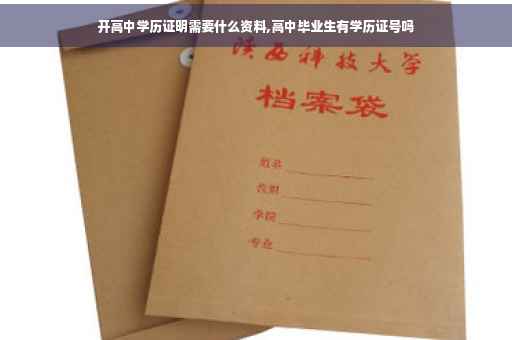 开高中学历证明需要什么资料,高中毕业生有学历证号吗
陕西科技大学
档案袋
姓名
性别
学院
专业